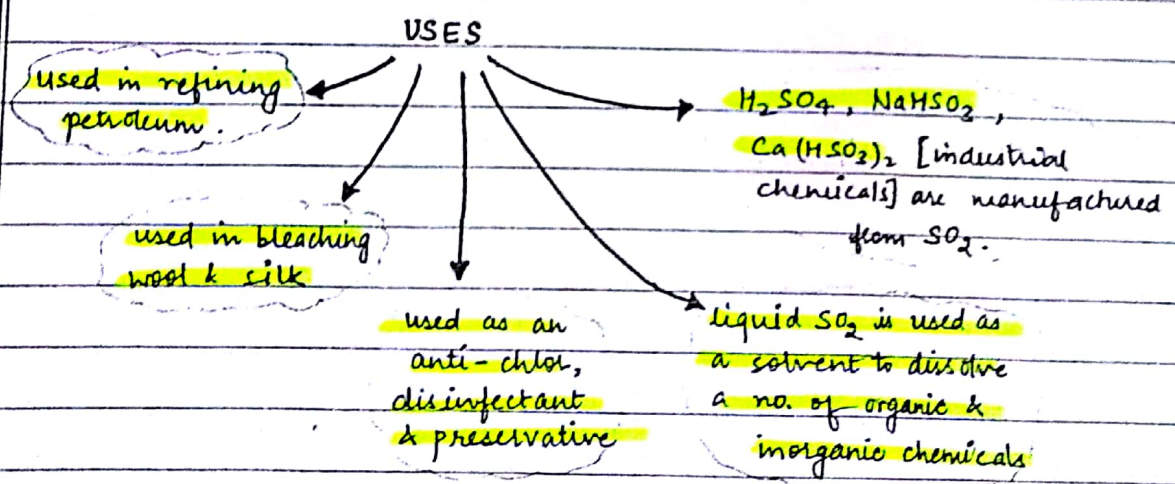 USES
used in refining
petroleum.
used in bleaching
wool & silk
used as an
anti-chlor,
disinfectant
& preservative
liquid SO₂ is used as
a solvent to dissolve
a no. of organic &
inorganic chemicals
H₂SO₄, NaHSO₃,
Ca(HSO₃)₂ [industrial
chemicals] are manufactured
from SO₂.